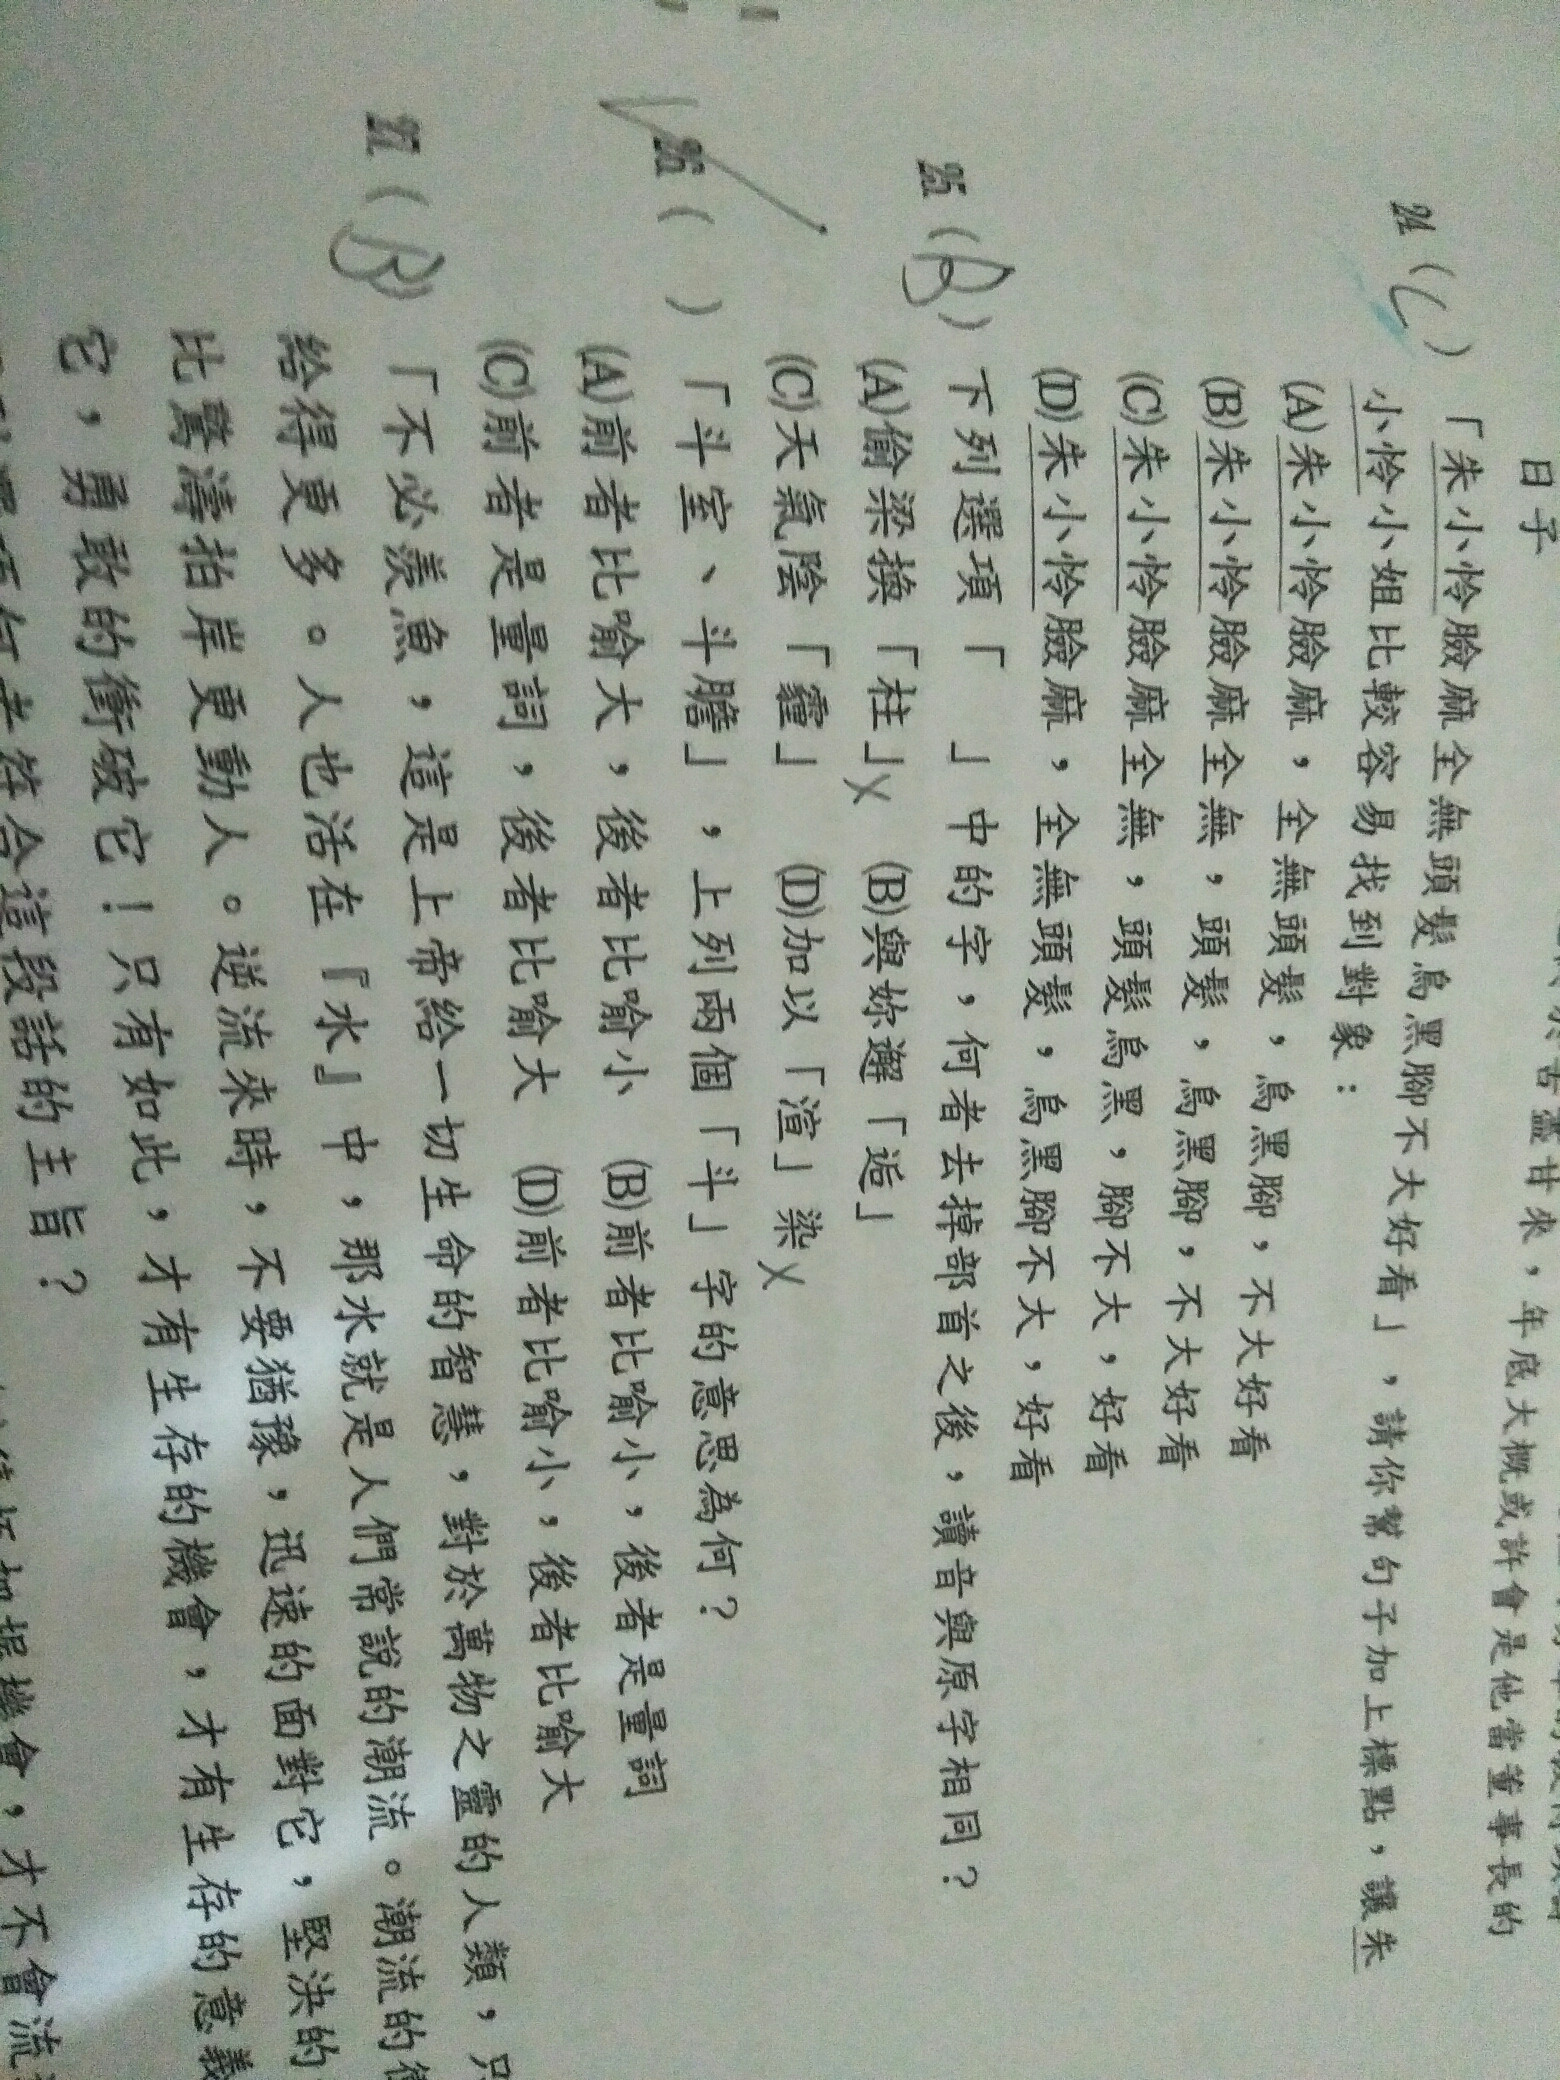 日子
24 (C) 「朱小怜臉麻全無頭髮烏黑腳不大好看」，請你幫句子加上標點，讓朱
小怜小姐比較容易找到對象：
(A)朱小怜臉麻，全無頭髮，烏黑腳，不大好看
(B)朱小怜臉麻全無，頭髮，烏黑腳，不大好看
(C)朱小怜臉麻全無，頭髮烏黑，腳不大，好看
(D)朱小怜臉麻，全無頭髮，烏黑腳不大，好看
25 (B) 下列選項「　」中的字，何者去掉部首之後，讀音與原字相同？
(A)偷梁換「柱」X (B)與妳邂「逅」
(C)天氣陰「霾」 (D)加以「渲」染X
26 ( ) 「斗室、斗膽」，上列兩個「斗」字的意思為何？
(A)前者比喻大，後者比喻小 (B)前者比喻小，後者是量詞
(C)前者是量詞，後者比喻大 (D)前者比喻小，後者比喻大
27 (B) 「不必羨魚，這是上帝給一切生命的智慧，對於萬物之靈的人類，只
給得更多。人也活在『水』中，那水就是人們常說的潮流。潮流的衝
比驚濤拍岸更動人。逆流來時，不要猶豫，迅速的面對它，堅決的
它，勇敢的衝破它！只有如此，才有生存的機會，才有生存的意義
符合這段話的主旨？